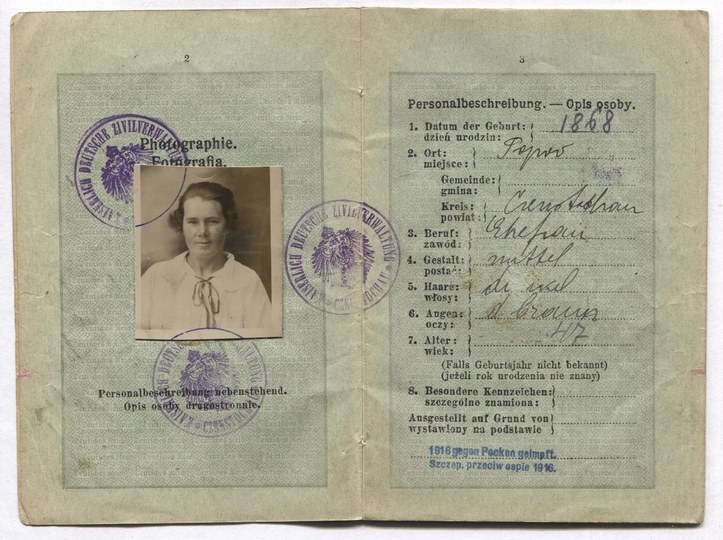 2
Photographie.
Fotografia.
KAISERLICH DEUTSCHE ZIVILVERWALTUNG
KAISERLICH DEUTSCHE ZIVILVERWALTUNG
Personalbeschreibung nebenstehend.
Opis osoby drugostronnie.
3
Personalbeschreibung. — Opis osoby.
1. Datum der Geburt: 1868
dzień urodzin:
2. Ort:
miejsce:
Gemeinde:
gmina:
Kreis: Czenstochau
powiat:
3. Beruf: Ehefrau
zawód:
4. Gestalt: mittel
postać:
5. Haare:
włosy:
6. Augen: braun
oczy:
7. Alter: 47
wiek:
(Falls Geburtsjahr nicht bekannt)
(jeżeli rok urodzenia nie znany)
8. Besondere Kennzeichen:
szczególne znamiona:
Ausgestellt auf Grund von
wystawiony na podstawie
1916 gegen Pocken geimpft.
Szczep. przeciw ospie 1916.